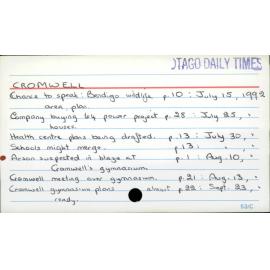 OTAGO DAILY TIMES
CROMWELL
Chance to speak: Bendigo wildlife p.10 : July 15, 1992
area plan.
Company buying 64 power project p.28 : July 25, "
houses.
Health centre plans being drafted. p.13 : July 30, "
Schools might merge. p.13 : " "
Arson suspected in blaze at p.1 : Aug.10, "
Cromwell's gymnasium.
Cromwell meeting over gymnasium. p.21 : Aug.13, "
Cromwell gymnasium plans almost p.22 : Sept.23, "
ready.
53/C